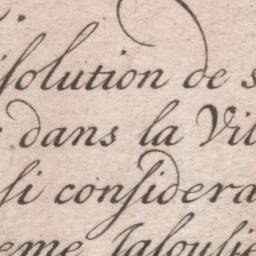 ſsolution de s
dans la Vil
si conſidera
eme Jalousie